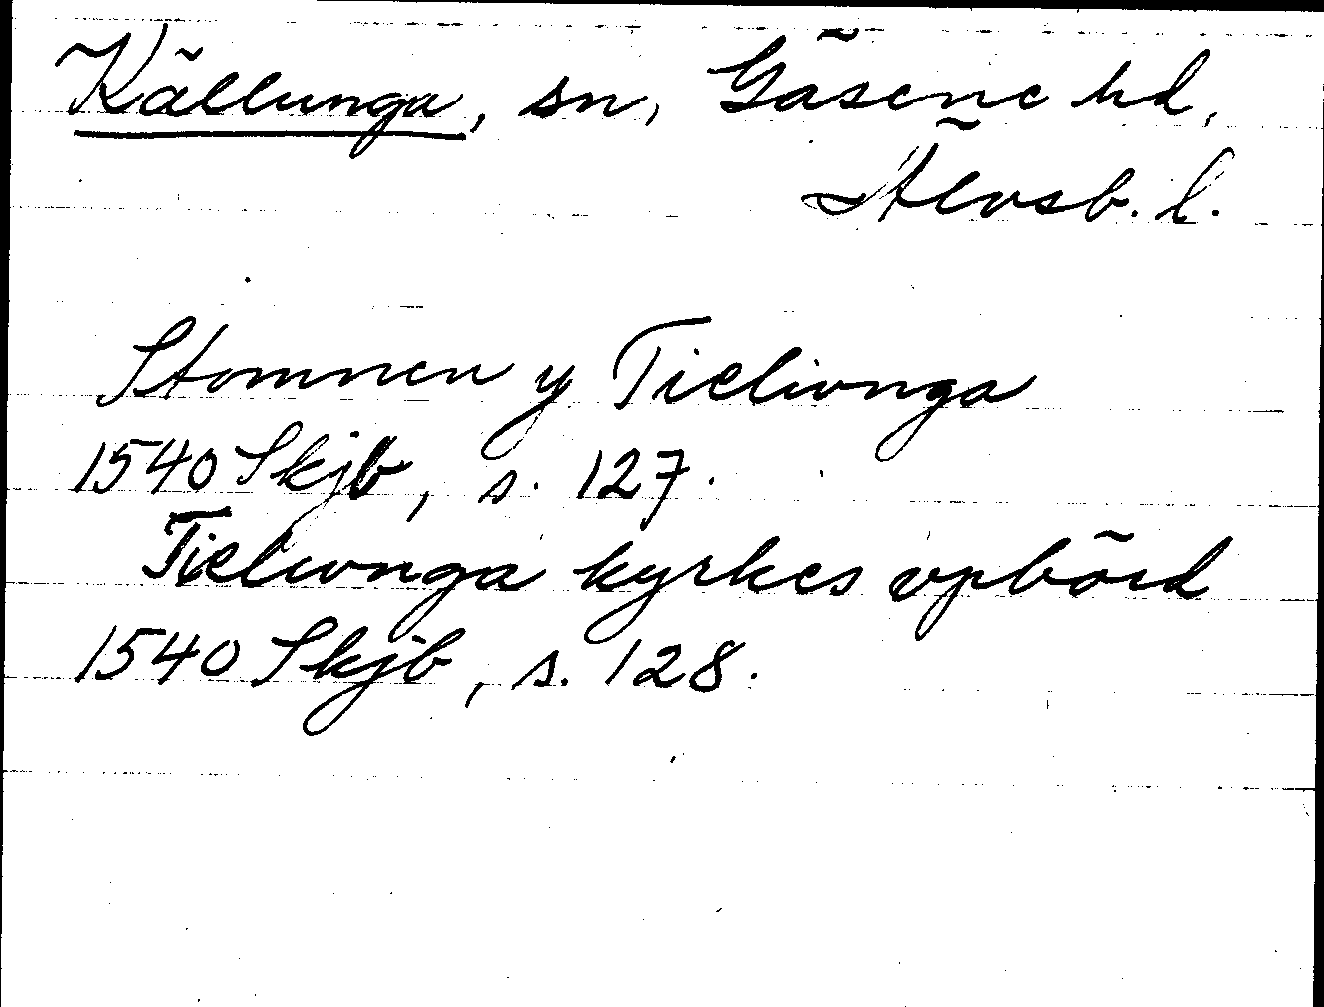 Källunga, sn, Gäsene hd,
Älvsb. l.
Stommen y Tielivnga
1540 Skjb, s. 127.
Tielivnga kyrkes vpbörd
1540 Skjb, s. 128.